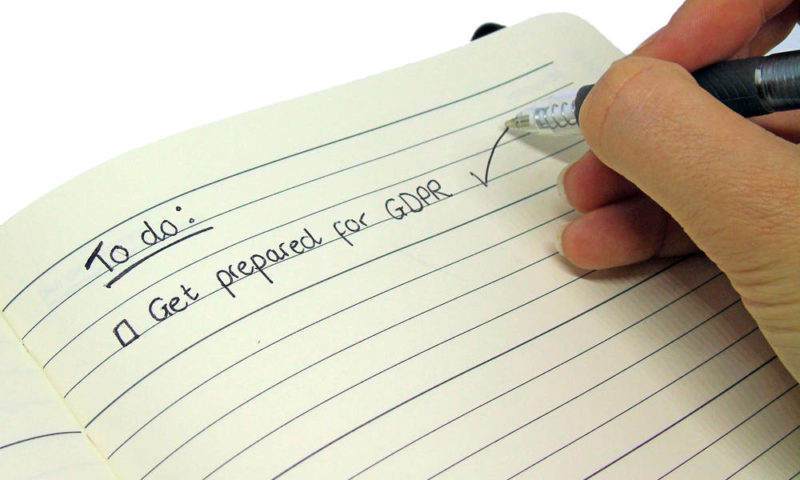 To do:
□ Get prepared for GDPR ✓